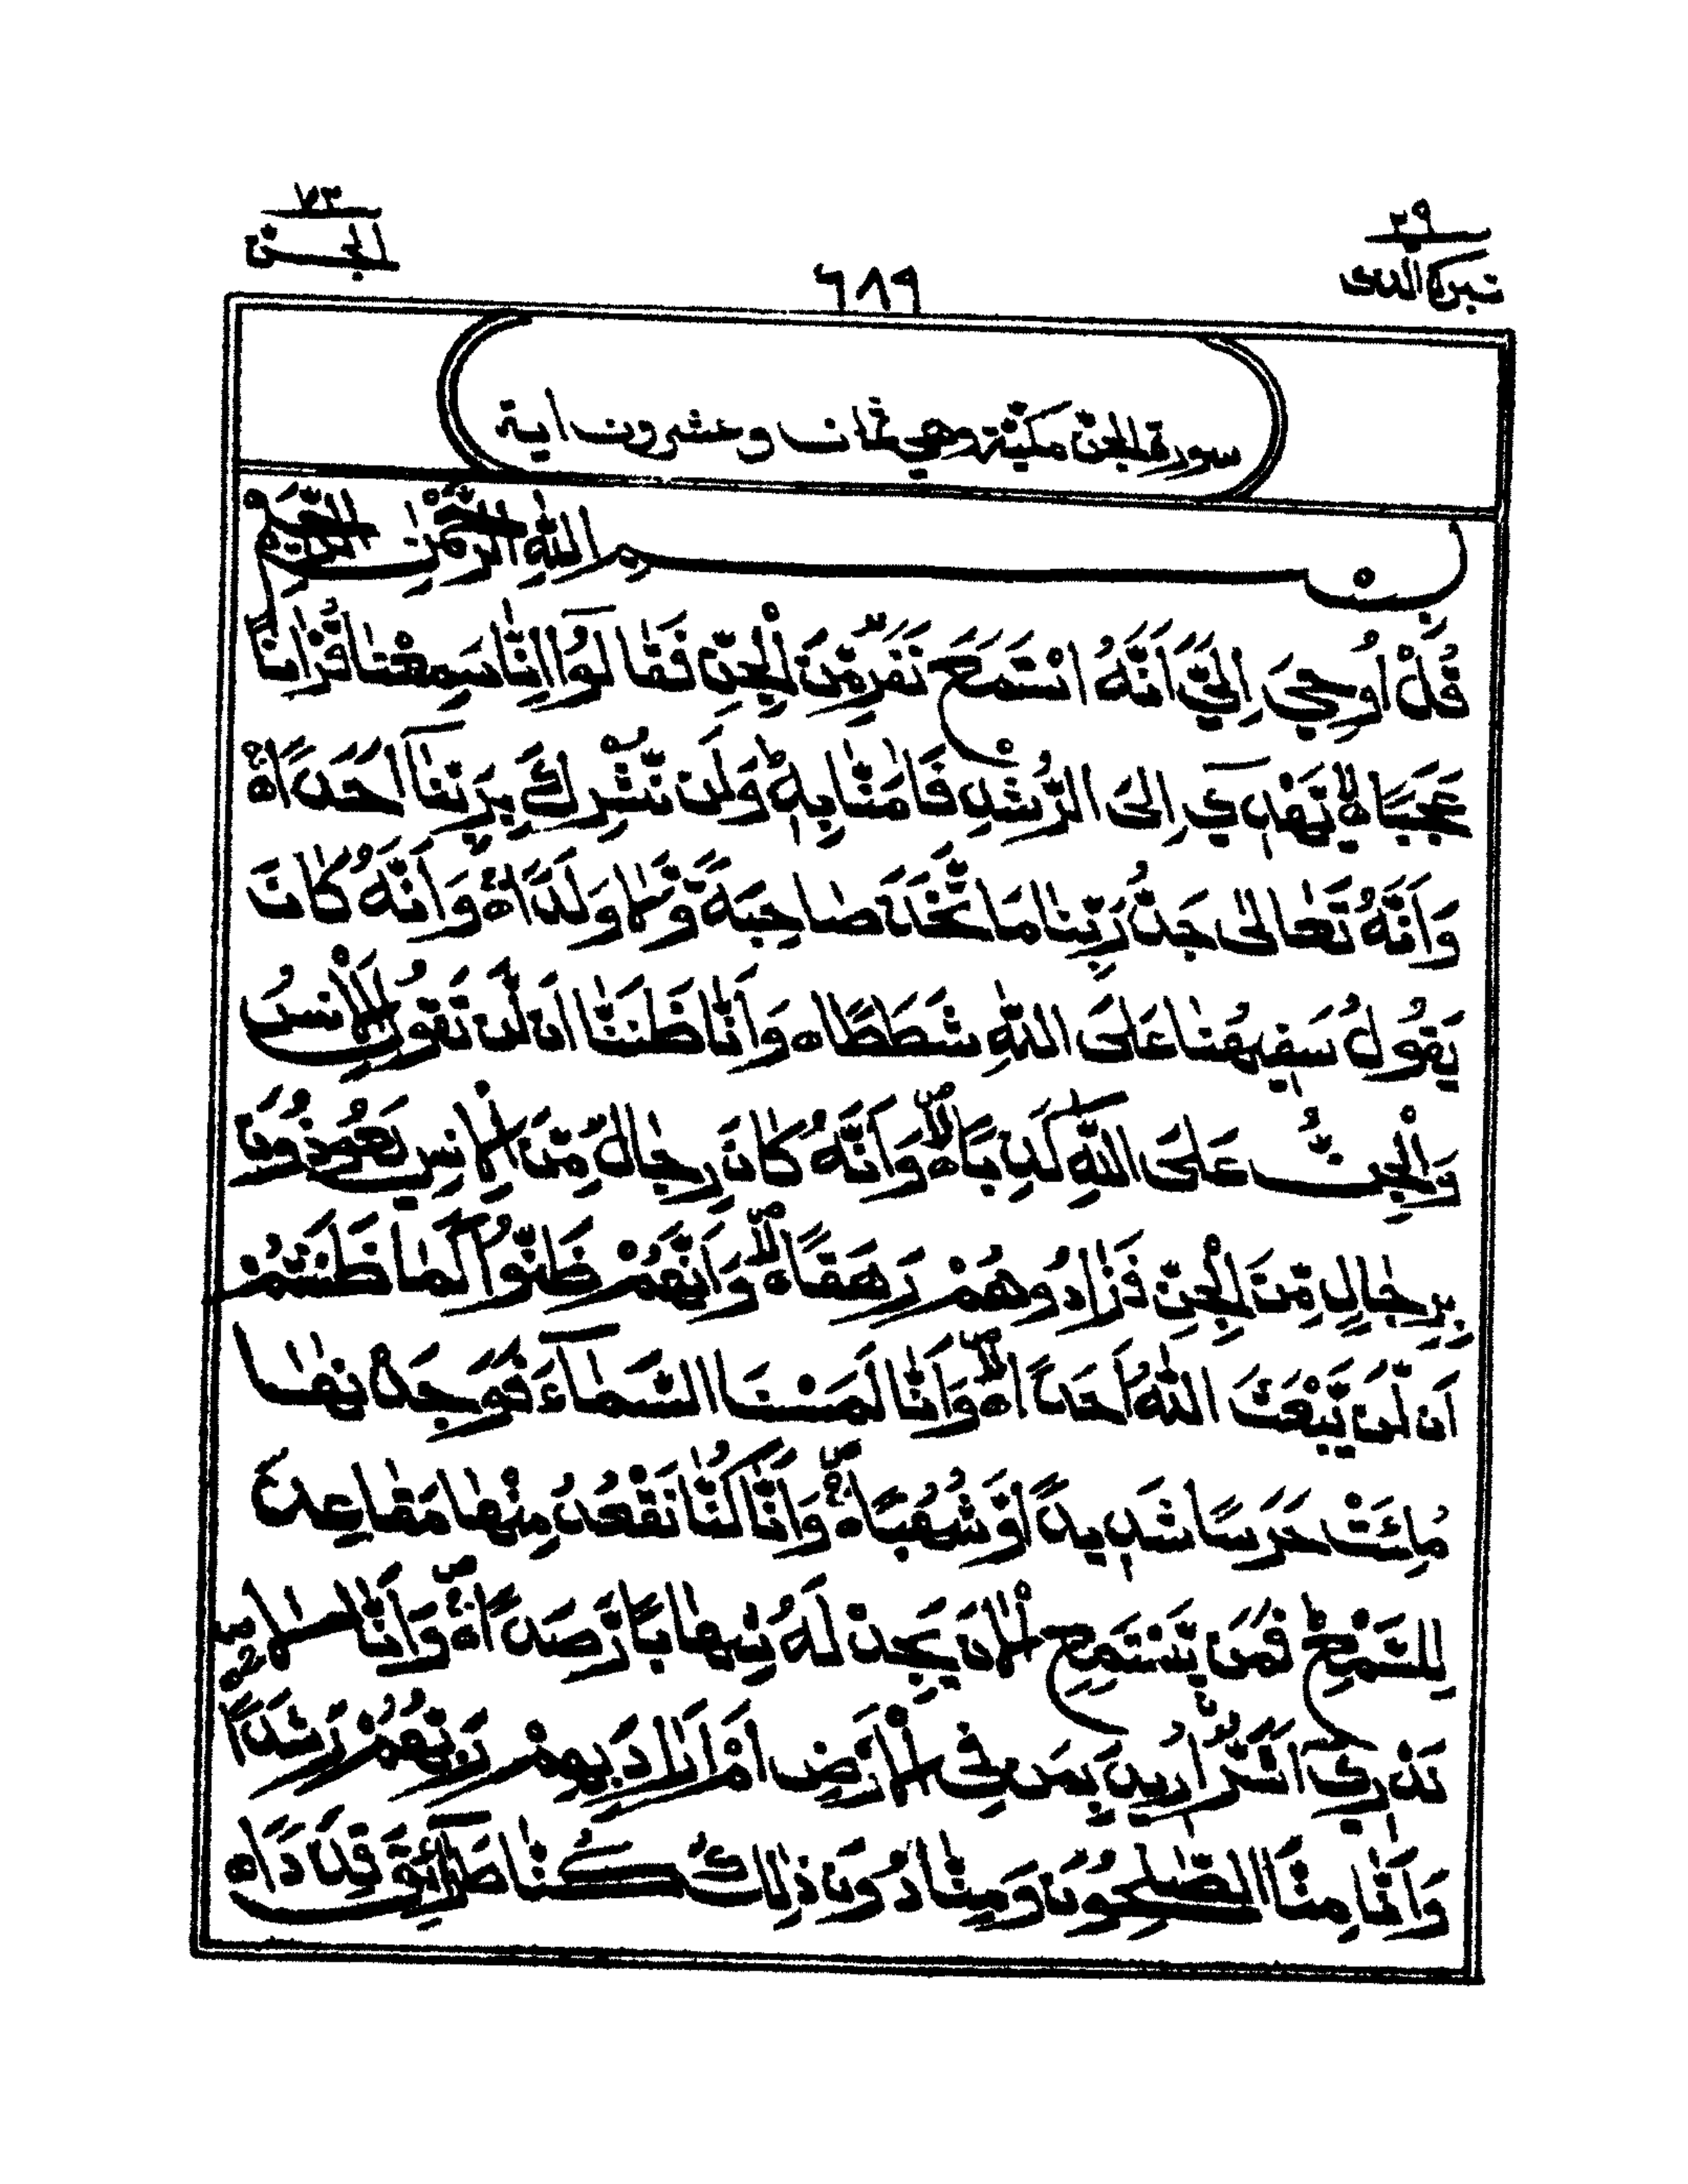 ٢٩
تبرك الذى
٦٨٩
٧٣
الجن
سورة الجن مكيّة وهي ثمان وعشرون اية
بِسْمِ اللّٰهِ الرَّحْمٰنِ الرَّحِيْمِ
قُلْ اُوحِيَ اِلَيَّ اَنَّهُ اسْتَمَعَ نَفَرٌ مِّنَ الْجِنِّ فَقَالُوْٓا اِنَّا سَمِعْنَا قُرْاٰنًا
عَجَبًاۙ يَّهْدِيْٓ اِلَى الرُّشْدِ فَاٰمَنَّا بِهٖ ؕ وَلَنْ نُّشْرِكَ بِرَبِّنَآ اَحَدًاۙ
وَّاَنَّهٗ تَعٰلٰى جَدُّ رَبِّنَا مَا اتَّخَذَ صَاحِبَةً وَّلَا وَلَدًاۙ وَّاَنَّهٗ كَانَ
يَقُوْلُ سَفِيْهُنَا عَلَى اللّٰهِ شَطَطًاۙ وَّاَنَّا ظَنَنَّآ اَنْ لَّنْ تَقُوْلَ الْاِنْسُ
وَالْجِنُّ عَلَى اللّٰهِ كَذِبًاۙ وَّاَنَّهٗ كَانَ رِجَالٌ مِّنَ الْاِنْسِ يَعُوْذُوْنَ
بِرِجَالٍ مِّنَ الْجِنِّ فَزَادُوْهُمْ رَهَقًاۙ وَّاَنَّهُمْ ظَنُّوْا كَمَا ظَنَنْتُمْ
اَنْ لَّنْ يَّبْعَثَ اللّٰهُ اَحَدًاۙ وَّاَنَّا لَمَسْنَا السَّمَآءَ فَوَجَدْنٰهَا
مُلِئَتْ حَرَسًا شَدِيْدًا وَّشُهُبًاۙ وَّاَنَّا كُنَّا نَقْعُدُ مِنْهَا مَقَاعِدَ
لِلسَّمْعِ ؕ فَمَنْ يَّسْتَمِعِ الْاٰنَ يَجِدْ لَهٗ شِهَابًا رَّصَدًاۙ وَّاَنَّا لَا
نَدْرِيْٓ اَشَرٌّ اُرِيْدَ بِمَنْ فِي الْاَرْضِ اَمْ اَرَادَ بِهِمْ رَبُّهُمْ رَشَدًاۙ
وَّاَنَّا مِنَّا الصّٰلِحُوْنَ وَمِنَّا دُوْنَ ذٰلِكَ ؕ كُنَّا طَرَآئِقَ قِدَدًاۙ